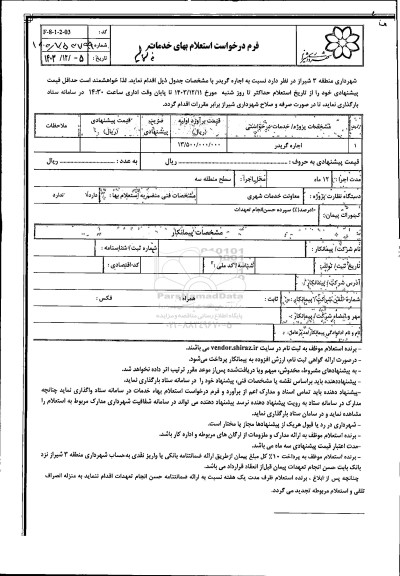 کد : F-8-1-2-03
فرم درخواست استعلام بهای خدمات
شماره :
تاریخ : ۱۴۰۳/۱۲/۰۵
شهرداری شیراز
شهرداری منطقه ۳ شیراز در نظر دارد نسبت به اجاره گریدر با مشخصات جدول ذیل اقدام نماید. لذا خواهشمند است حداقل قیمت
پیشنهادی خود را از تاریخ استعلام حداکثر تا روز شنبه مورخ ۱۴۰۳/۱۲/۱۱ تا پایان وقت اداری ساعت ۱۴:۳۰ در سامانه ستاد
بارگذاری نمایند، تا در صورت صرفه و صلاح شهرداری شیراز برابر مقررات اقدام گردد.
مشخصات پروژه/ خدمات درخواستی
قیمت برآورد اولیه (ریال)
ضریب پیشنهادی
قیمت پیشنهادی (ریال)
ملاحظات
۱ اجاره گریدر ۱۳/۵۰۰/۰۰۰/۰۰۰
قیمت پیشنهادی به حروف : ریال به عدد : ریال
مدت اجرا : ۱۲ ماه محل اجرا : سطح منطقه سه
دستگاه نظارت پروژه : معاونت خدمات شهری مشخصات فنی منضم به استعلام بها : دارد ندارد
کسورات پیمان: ۱۰درصد(٪) سپرده حسن انجام تعهدات
مشخصات پیمانکار
نام شرکت/ پیمانکار : شماره ثبت/ شناسنامه :
تاریخ ثبت/ تولد: شناسه /کد ملی : کد اقتصادی :
آدرس شرکت/ پیمانکار :
شماره تلفن شرکت/ پیمانکار : ثابت : همراه : فکس :
مهر و امضاء شرکت/ پیمانکار :
ParsNamadData
پایگاه اطلاع رسانی مناقصه و مزایده
- برنده استعلام موظف به ثبت نام در سایت vendor.shiraz.ir می باشند.
- درصورت ارائه گواهی ثبت نام، ارزش افزوده به پیمانکار پرداخت می‌شود.
- به پیشنهادهای مشروط، مخدوش، مبهم ویا دریافت‌شده پس‌از موعد مقرر ترتیب اثر داده نخواهد شد.
- پیشنهاددهنده باید براساس نقشه یا مشخصات فنی، پیشنهاد خود را در سامانه ستاد بارگذاری نماید.
-پیشنهاد دهنده باید تمامی اسناد و مدارک اعم از برآورد و فرم درخواست استعلام بهاء خدمات در سامانه ستاد واگذاری نماید چنانچه
مدارک در سامانه ستاد به رویت پیشنهاد دهنده نرسد پیشنهاد دهنده می تواند در سامانه شفافیت شهرداری مدارک مربوط به استعلام را
مشاهده نماید و در سامان ستاد بارگذاری نماید.
- شهرداری در رد یا قبول هریک از پیشنهادها مجاز یا مختار است.
- برنده استعلام موظف به ارائه مدارک و ملزومات از ارگان های مربوطه و اداره کار باشد.
-مدت اعتبار قیمت پیشنهادی سه ماه می باشد.
- برنده استعلام موظف به پرداخت ۱۰٪ کل مبلغ پیمان ازطریق ارائه ضمانتنامه بانکی یا واریز نقدی به‌حساب شهرداری منطقه ۳ شیراز نزد
بانک بابت حسن انجام تعهدات پیمان قبل‌از انعقاد قرارداد می باشد.
چنانچه پس از ابلاغ ، برنده استعلام ظرف مدت یک هفته نسبت به ارائه ضمانتنامه حسن انجام تعهدات اقدام ننماید به منزله انصراف
تلقی و استعلام مربوطه تجدید می گردد.